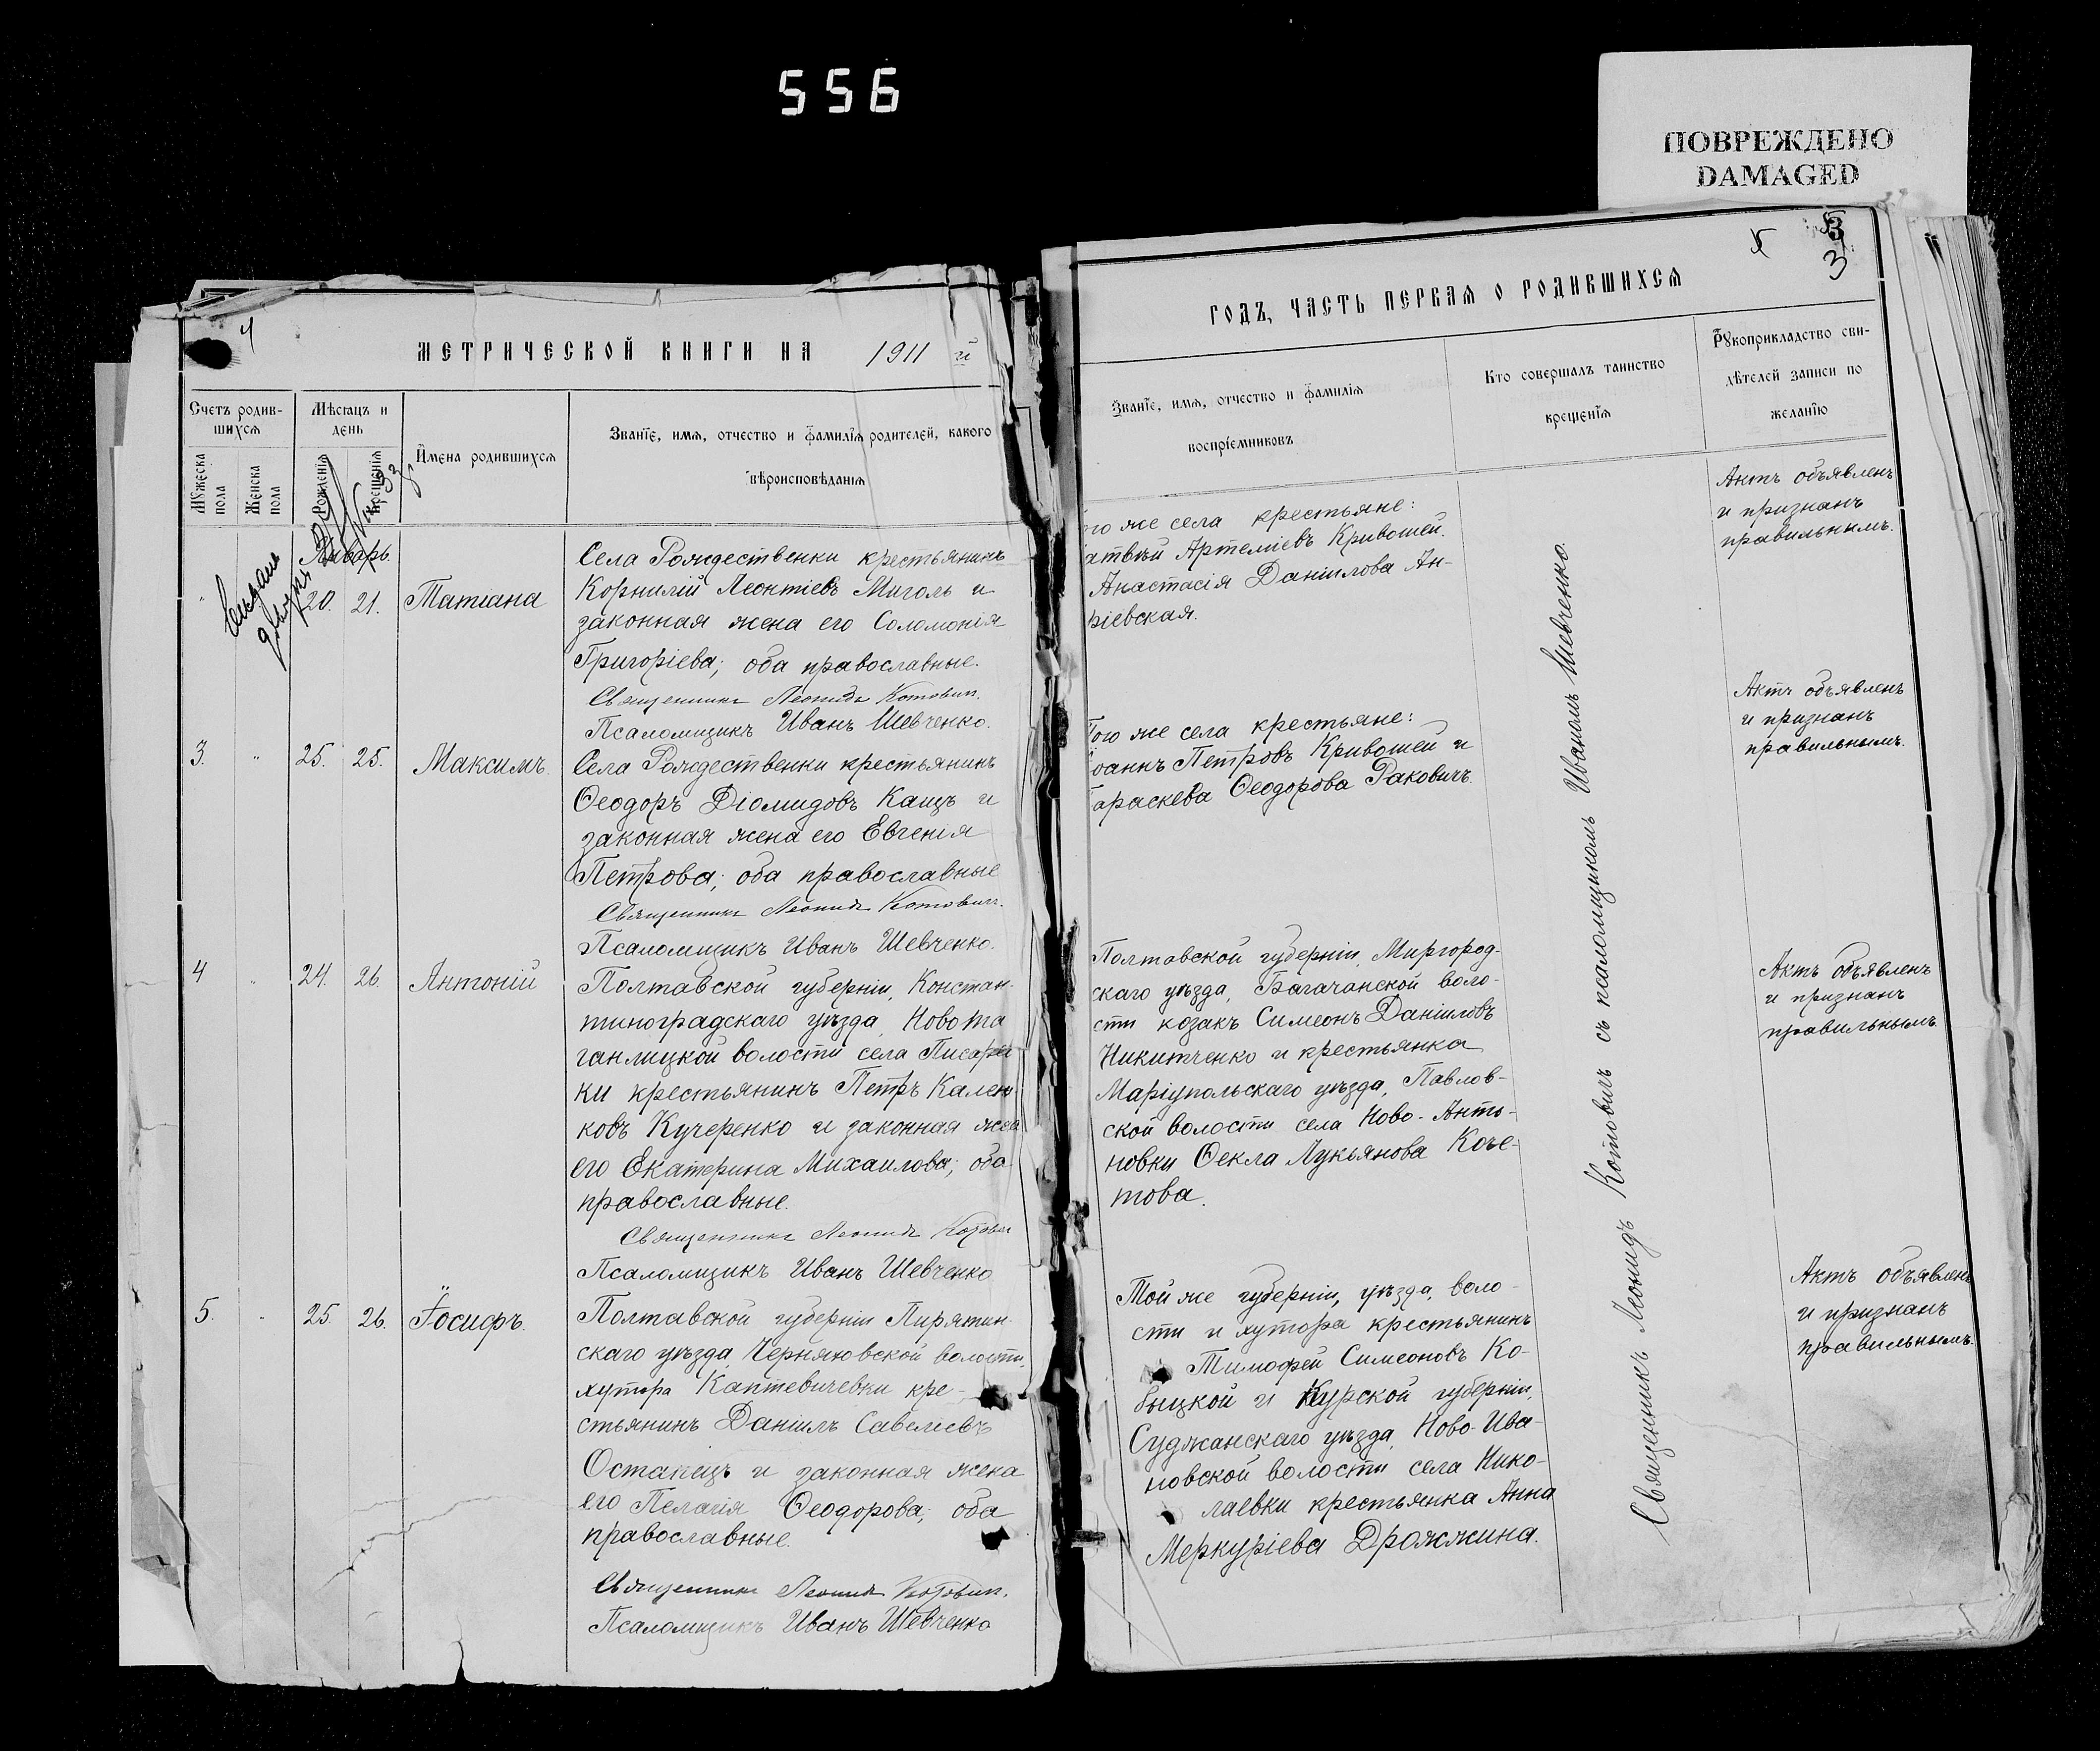 556
ПОВРЕЖДЕНО
DAMAGED
4
МЕТРИЧЕСКОЙ КНИГИ НА 1911 й
Счетъ родив-
шихся
Мѣсяцъ и
день
Мужеска
пола
Женска
пола
Рожденія
Крещенія
Имена родившихся
Званіе, имя, отчество и фамилія родителей, какого
вѣроисповѣданія
Январь.
20. 21. Татіана
Села Рождественки крестьянинъ
Корнилій Леонтіевъ Миголь и
законная жена его Соломонія
Григоріева; оба православные.
Священникъ Леонидъ Котович.
Псаломщикъ Иванъ Шевченко.
3. " 25. 25. Максимъ.
Села Рождественки крестьянинъ
Ѳеодоръ Діомидовъ Кащъ и
законная жена его Евгенія
Петрова; оба православные
Священникъ Леонидъ Котович.
Псаломщикъ Иванъ Шевченко.
4 " 24. 26. Антоній
Полтавской губерніи, Констан-
тиноградскаго уѣзда, Ново
волости села Писарев
ки крестьянинъ Петръ Калени-
ковъ Кучеренко и законная жена
его Екатерина Михаилова; оба
православные.
Священникъ Леонидъ Котович
Псаломщикъ Иванъ Шевченко
5. " 25. 26. Іосифъ.
Полтавской губерніи Пирятин-
скаго уѣзда, Черняховской волости,
хутора Каптевичевки кре-
стьянинъ Даніилъ Савеліевъ
Остапецъ и законная жена
его Пелагія Ѳеодорова; оба
православные.
Священникъ Леонидъ Котович.
Псаломщикъ Иванъ Шевченко
3
3
ГОДЪ, ЧАСТЬ ПЕРВАЯ О РОДИВШИХСЯ
Званіе, имя, отчество и фамилія
воспріемниковъ
Кто совершалъ таинство
крещенія
Рукоприкладство сви-
дѣтелей записи по
желанію
ого же села крестьяне:
атвѣй Артеміевъ Кривошей.
Анастасія Даніилова Ан-
ріевская.
Актъ объявленъ
и признанъ
правильнымъ.
Того же села крестьяне:
оаннъ Петровъ Кривошей и
араскева Ѳеодорова Раковичъ.
Актъ объявленъ
и признанъ
правильнымъ.
Полтавской губерніи, Миргород-
скаго уѣзда, Багачанской воло-
сти козакъ Симеонъ Даніиловъ
Никитченко и крестьянка
Маріупольскаго уѣзда, Павлов-
ской волости села Ново-Анто-
новки Ѳекла Лукьянова Коче-
това.
Актъ объявленъ
и признанъ
правильнымъ.
Той же губерніи, уѣзда, воло-
сти и хутора крестьянинъ
Тимофей Симеоновъ Ко-
быцкой и Курской губерніи,
Суджанскаго уѣзда, Ново-Ива-
новской волости села Нико-
лаевки крестьянка Анна
Меркуріева Дрожжина.
Актъ объявленъ
и признанъ
правильнымъ.
Священникъ Леонидъ Котовичъ съ псаломщикомъ Иваномъ Шевченко.